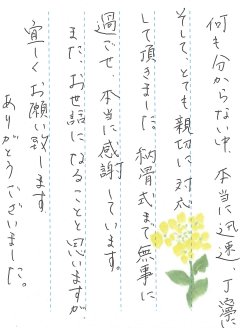 何も分からない中、本当に迅速、丁寧に
そして、とても親切に対応
して頂きました。納骨式まで無事に
過ごせ、本当に感謝しています。
また、お世話になることと思いますが
宜しくお願い致します。
ありがとうございました。